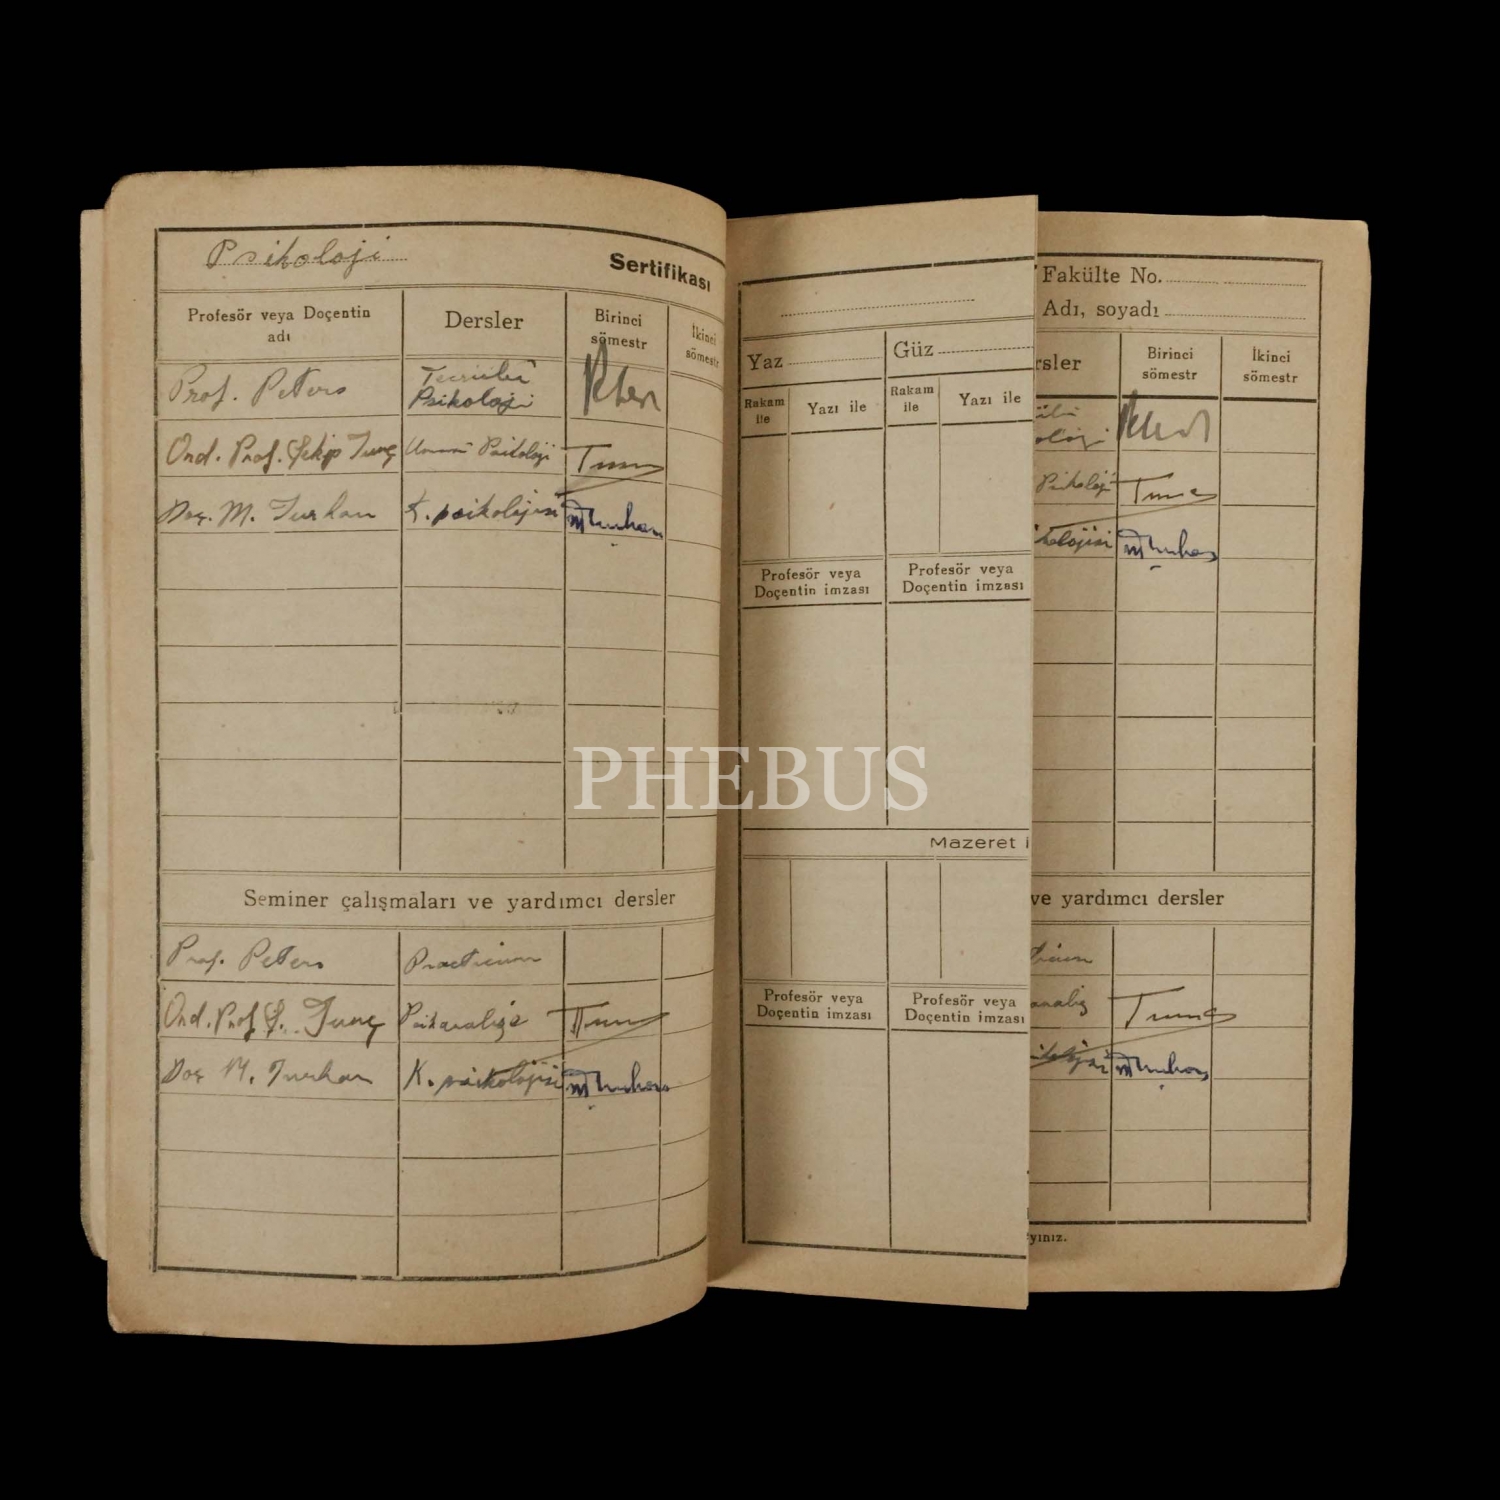 Psikoloji Sertifikası
Profesör veya Doçentin adı Dersler Birinci sömestr İkinci sömestr
Prof. Peters Tecrübî Psikoloji
Ord. Prof. Şekip Tunç Umumî Psikoloji Tunç
Doç. M. Turhan K. psikolojisi MTurhan
Seminer çalışmaları ve yardımcı dersler
Prof. Peters Practicum
Ord. Prof. Ş. Tunç Psikanaliz Tunç
Doç M. Turhan K. psikolojisi MTurhan
Yaz Güz
Rakam ile Yazı ile Rakam ile Yazı ile
Profesör veya Doçentin imzası Profesör veya Doçentin imzası
Mazeret i
Profesör veya Doçentin imzası Profesör veya Doçentin imzası
Fakülte No.
Adı, soyadı
rsler Birinci sömestr İkinci sömestr
Psikoloji Tunç
kolojisi MTurhan
ve yardımcı dersler
ticum
analiz Tunç
MTurhan
yınız.
PHEBUS